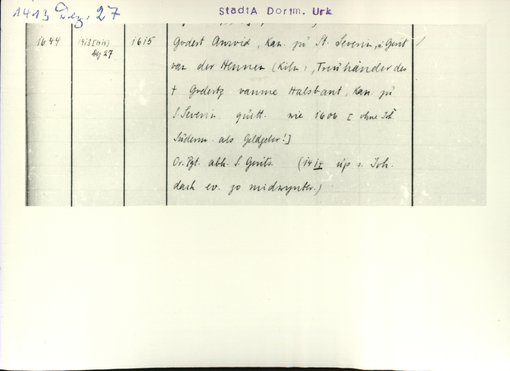 1413 Dez. 27
StadtA Dortm. Urk
1644
1413 [1414]
Dez 27
1615
Godert Ansvid, Kan. zu St. Severin, u. Gerit
van der Hennen (Köln), Treuhänder des
† Godertz vanme Halsbant, Kan. zu
S. Severin quitt. wie 1606 I ohne
Süderm. als Geldgeber!]
Or. Pgt. abh. S. Gerits. (141 up s. Joh.
dach ev. zo midwynter.)